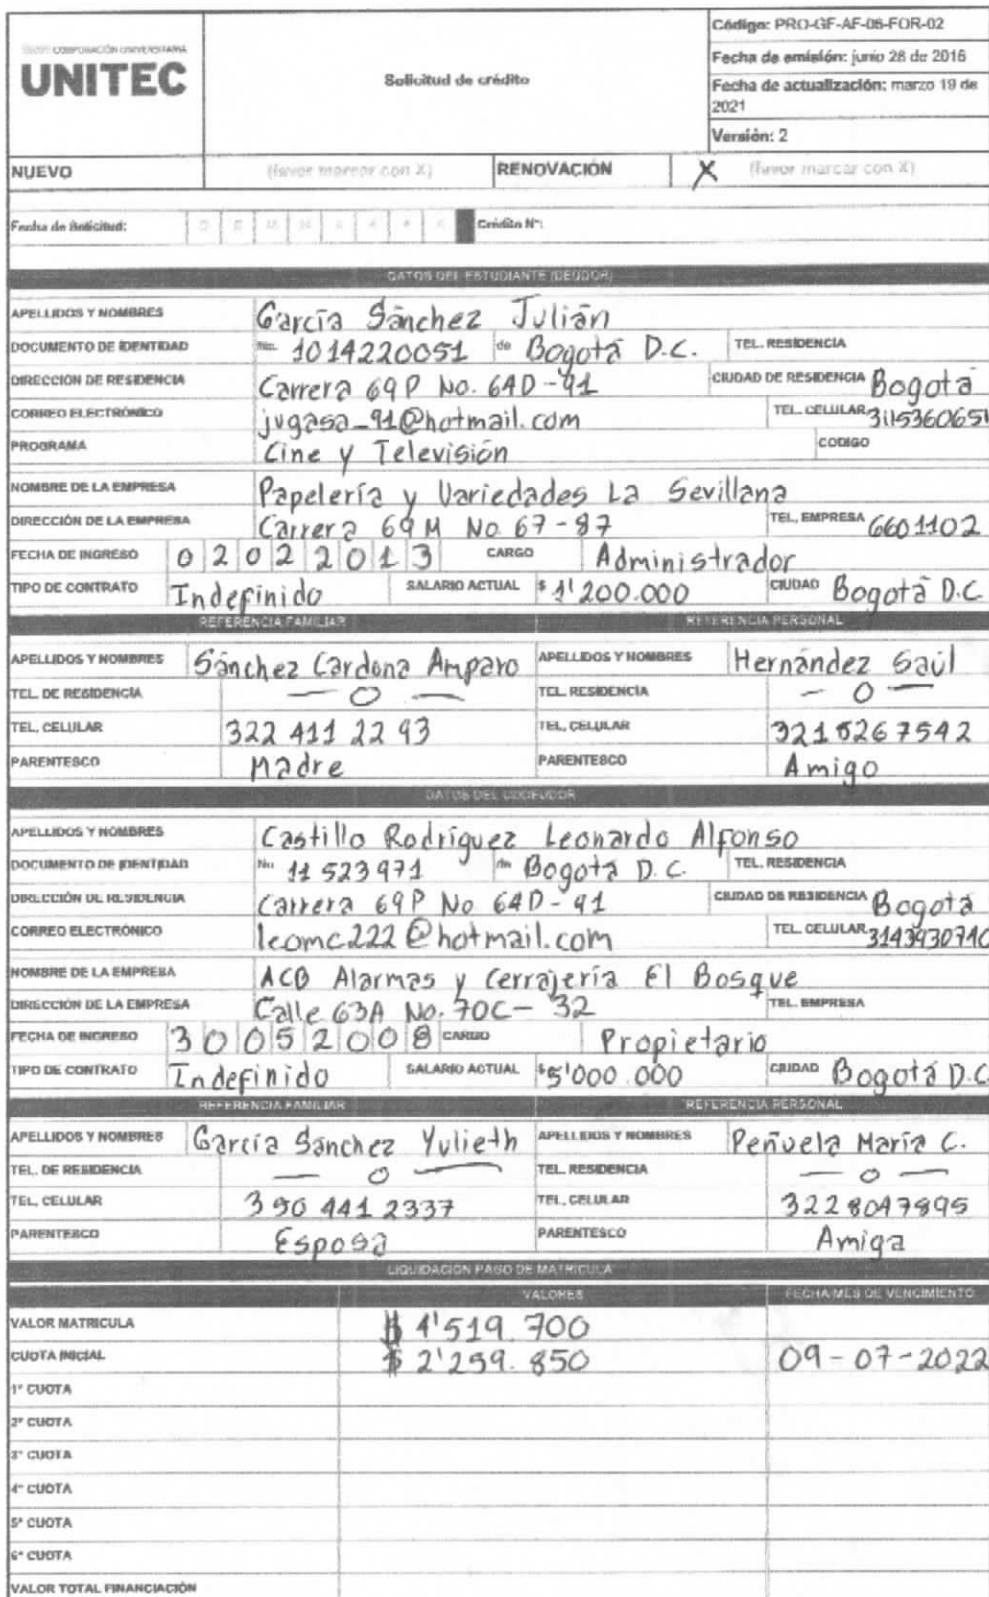 CORPORACIÓN UNIVERSITARIA
UNITEC
Solicitud de crédito
Código: PRO-GF-AF-06-FOR-02
Fecha de emisión: junio 28 de 2016
Fecha de actualización: marzo 19 de 2021
Versión: 2
NUEVO (favor marcar con X) RENOVACIÓN X (favor marcar con X)
Fecha de Solicitud: Crédito N°:
DATOS DEL ESTUDIANTE (DEUDOR)
APELLIDOS Y NOMBRES García Sánchez Julián
DOCUMENTO DE IDENTIDAD No. 1014220051 de Bogotá D.C. TEL. RESIDENCIA
DIRECCIÓN DE RESIDENCIA Carrera 69P No. 64D-91 CIUDAD DE RESIDENCIA Bogotá
CORREO ELECTRÓNICO jugasa_91@hotmail.com TEL. CELULAR 3115360651
PROGRAMA Cine y Televisión CODIGO
NOMBRE DE LA EMPRESA Papelería y Variedades La Sevillana
DIRECCIÓN DE LA EMPRESA Carrera 69M No 67-87 TEL. EMPRESA 6601102
FECHA DE INGRESO 02022013 CARGO Administrador
TIPO DE CONTRATO Indefinido SALARIO ACTUAL $ 1'200.000 CIUDAD Bogotá D.C
REFERENCIA FAMILIAR REFERENCIA PERSONAL
APELLIDOS Y NOMBRES Sánchez Cardona Amparo APELLIDOS Y NOMBRES Hernández Saúl
TEL. DE RESIDENCIA — 0 — TEL. RESIDENCIA — 0 —
TEL. CELULAR 322 411 22 93 TEL. CELULAR 3215267542
PARENTESCO Madre PARENTESCO Amigo
DATOS DEL CODEUDOR
APELLIDOS Y NOMBRES Castillo Rodríguez Leonardo Alfonso
DOCUMENTO DE IDENTIDAD No. 11523971 de Bogotá D.C. TEL. RESIDENCIA
DIRECCIÓN DE RESIDENCIA Carrera 69P No 64D-91 CIUDAD DE RESIDENCIA Bogotá
CORREO ELECTRÓNICO leomc222@hotmail.com TEL. CELULAR 3143930740
NOMBRE DE LA EMPRESA ACB Alarmas y Cerrajería El Bosque
DIRECCIÓN DE LA EMPRESA Calle 63A No. 70C-32 TEL. EMPRESA
FECHA DE INGRESO 30052008 CARGO Propietario
TIPO DE CONTRATO Indefinido SALARIO ACTUAL $5'000.000 CIUDAD Bogotá D.C
REFERENCIA FAMILIAR REFERENCIA PERSONAL
APELLIDOS Y NOMBRES García Sánchez Yulieth APELLIDOS Y NOMBRES Peñuela María C.
TEL. DE RESIDENCIA — 0 — TEL. RESIDENCIA — 0 —
TEL. CELULAR 350 441 2337 TEL. CELULAR 3228047895
PARENTESCO Esposa PARENTESCO Amiga
LIQUIDACIÓN PAGO DE MATRICULA
VALORES FECHA/MES DE VENCIMIENTO
VALOR MATRICULA $ 4'519.700
CUOTA INICIAL $ 2'259.850 09-07-2022
1° CUOTA
2° CUOTA
3° CUOTA
4° CUOTA
5° CUOTA
6° CUOTA
VALOR TOTAL FINANCIACIÓN